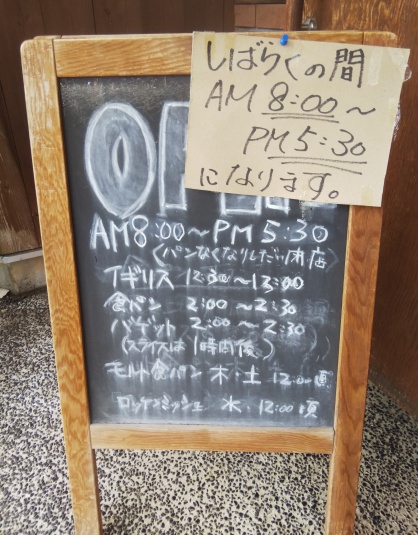 しばらくの間
AM 8:00～
PM 5:30
になります。
OPEN
AM 8:00～PM 5:30
(パンなくなりしだい閉店
イギリス 12:30～13:00
食パン 2:00～2:30
バゲット 2:00～2:30
(スライスは1時間後)
モルト食パン 木・土 12:00頃
ロッゲンミッシュ 水・12:00頃